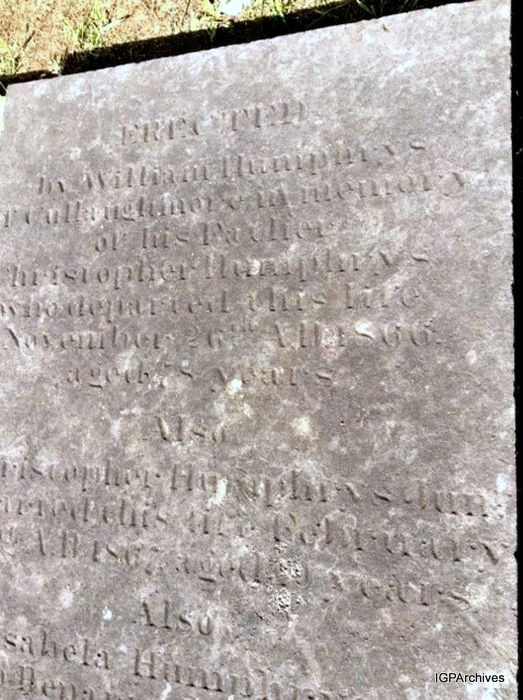 ERECTED
by William Humphrys
Cullaughmore in memory
of his Father
Christopher Humphrys
who departed this life
November 26th A.D 1866.
aged 78 years
Also
ristopher Humphrys Jun.
arted this life February
A.D 1867 aged years
Also
sabela Humphrys
IGPArchives